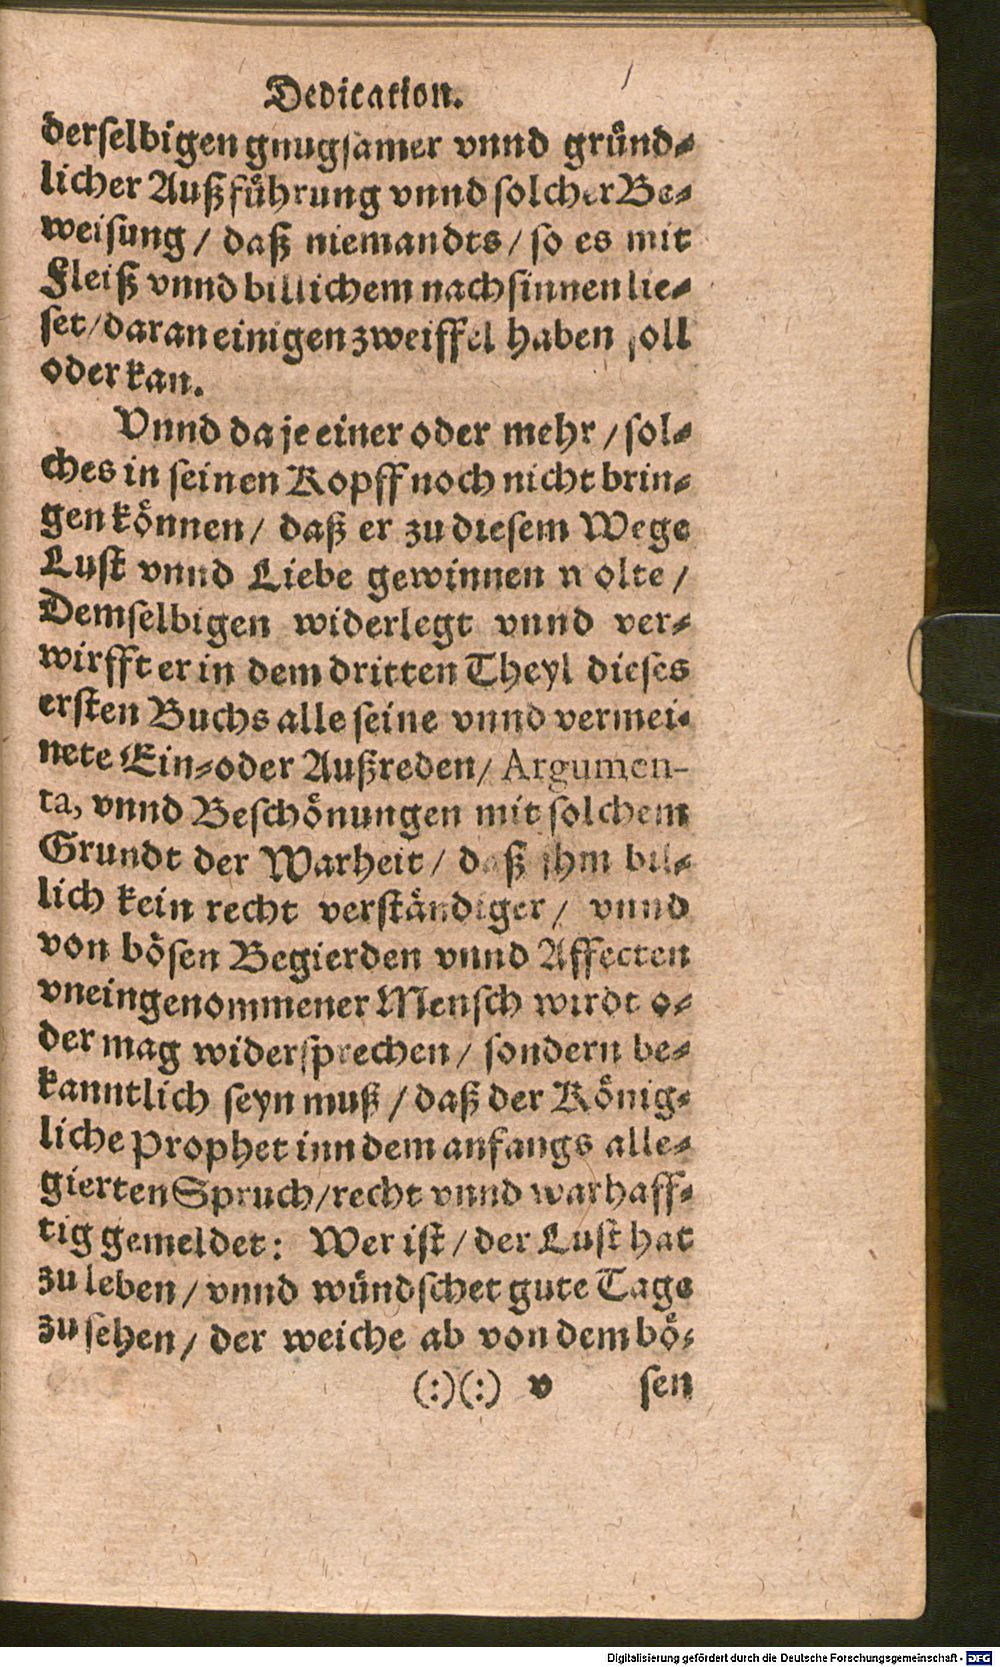 Dedication.
derselbigen gnugsamer vnnd gründ-
licher Außführung vnnd solcher Be-
weisung / daß niemandts / so es mit
Fleiß vnnd billichem nachsinnen lie-
set / daran einigen zweiffel haben soll
oder kan.
Vnnd da je einer oder mehr / sol-
ches in seinen Kopff noch nicht brin-
gen können / daß er zu diesem Wege
Lust vnnd Liebe gewinnen wolte /
Demselbigen widerlegt vnnd ver-
wirfft er in dem dritten Theyl dieses
ersten Buchs alle seine vnnd vermei-
nete Ein-oder Außreden / Argumen-
ta, vnnd Beschönungen mit solchem
Grundt der Warheit / daß ihm bil-
lich kein recht verständiger / vnnd
von bösen Begierden vnnd Affecten
vneingenommener Mensch wirdt o-
der mag widersprechen / sondern be-
kanntlich seyn muß / daß der König-
liche Prophet inn dem anfangs alle-
gierten Spruch / recht vnnd warhaff-
tig gemeldet: Wer ist / der Lust hat
zu leben / vnnd wündschet gute Tage
zu sehen / der weiche ab von dem bö-
(:)(:) v sen
Digitalisierung gefördert durch die Deutsche Forschungsgemeinschaft - DFG